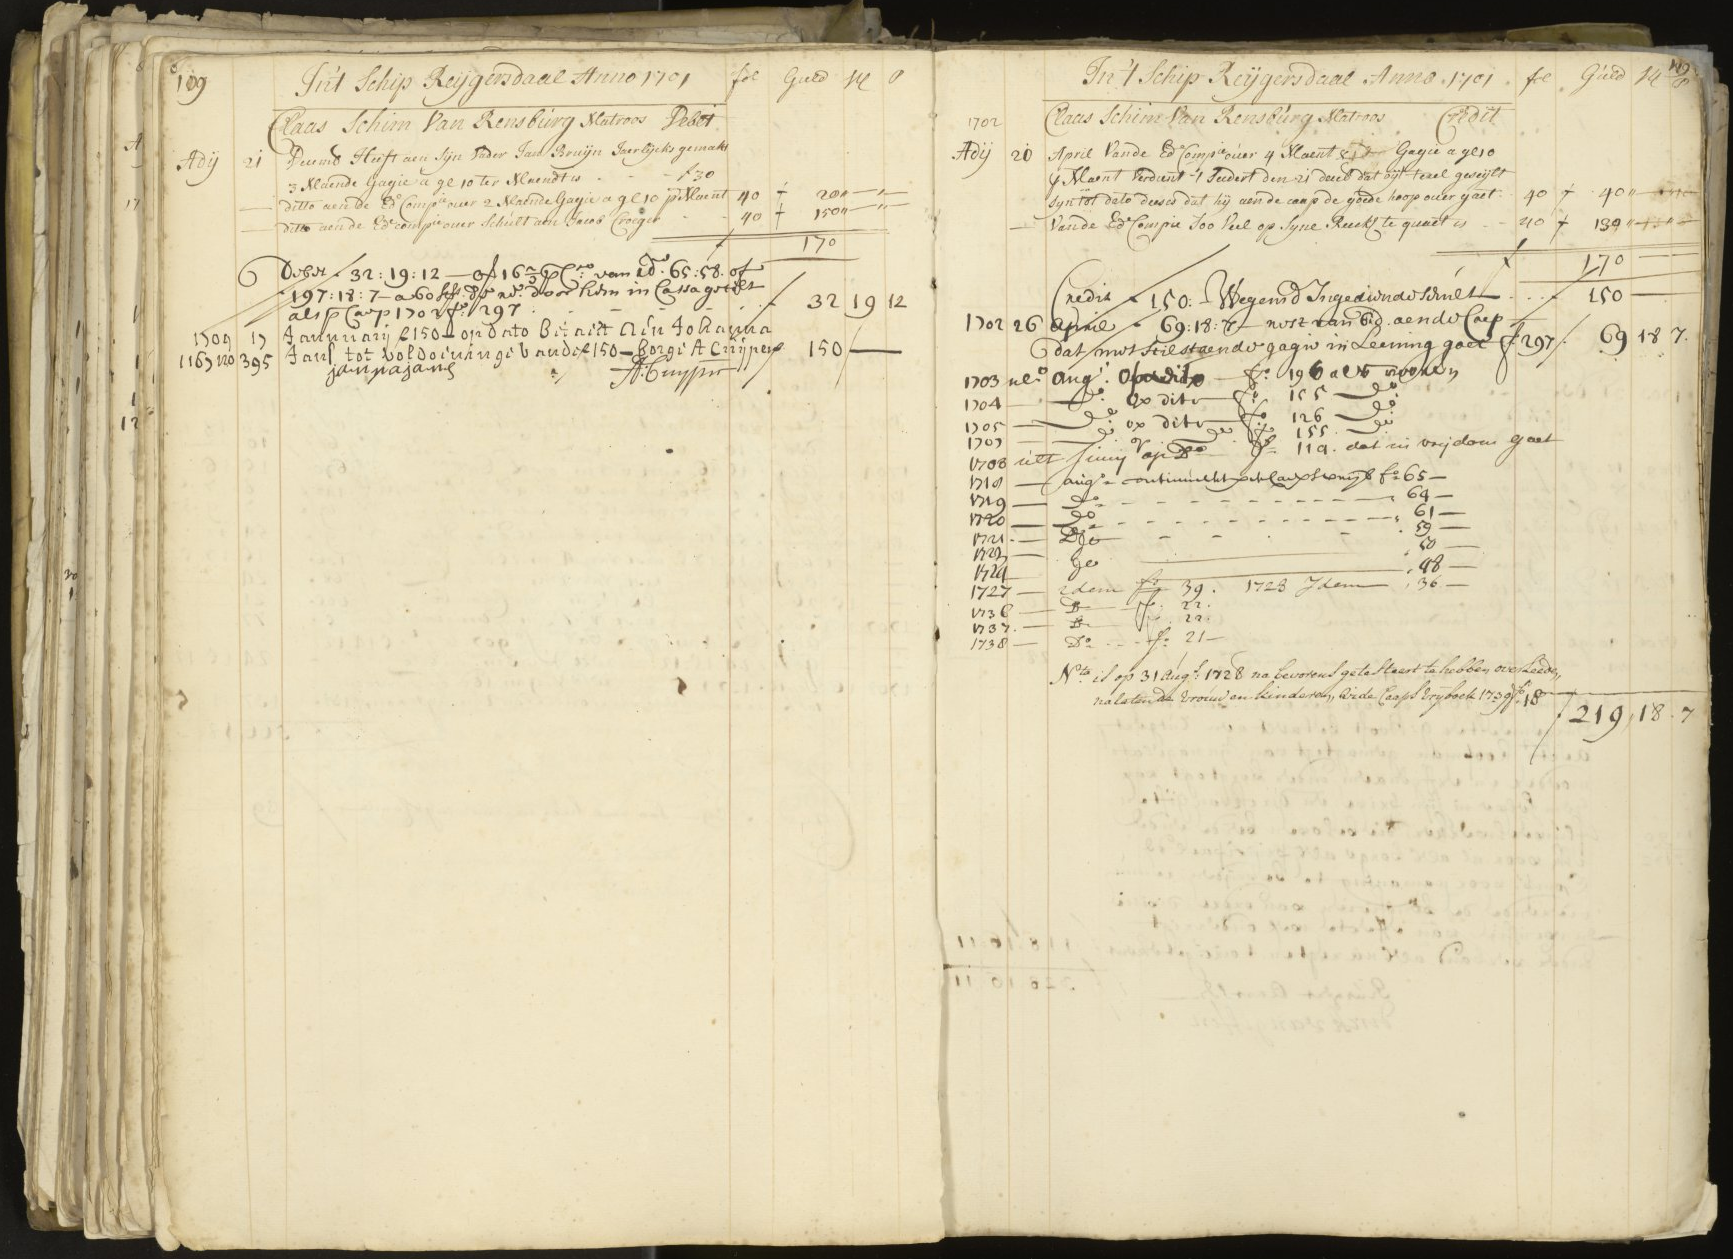 109 In't Schip Reijgersdaal Anno 1701 fol Guld st p
Claas Schim Van Rensburg Matroos Debet
Adij 21 Deumb Heeft aen Sijn Vader Jan Bruijn Jaerlijcks gemaks
3 Maende Gagie a gl 10 ter Maendt is - - f30
ditto aen de Ed Compie over 2 Maende Gagie a gl 10 pr Maent 40 f 20 " "
ditto aende Ed compie over Schult aen Jacob Croeger 40 f 150 " "
170
Debet 32:19:12
197:18:7 door hem in Cassa getelt
als p Caep 1702 fo 297 32 19 12
1709 17 Jannuarij f150 op dato Betaelt aen Johanna
1165 no 395 Jans tot voldoeninge vande f150 Borge A Cuijper 150
janna jans A: Cuyper
In't Schip Reijgersdaal Anno 1701 fol Guld st p 109
1702 Claas Schim Van Rensburg Matroos Credit
Adij 20 April Vande Ed Compie over 4 Maent Gagie a gl 10
p Maent Verdient 't Sedert den 21 deeb dat uijt texel geseijlt
sijn tot dato deeses dat hij aen de caap de goede hoop over gaet 40 f 40 "
Vande Ed Compie Soo Veel op Syne Reeck te quaet is 40 f 130 "
170
Credit 150 Wegens d' Ingediende Schult 150
1702 26 April 69:18:7 rest van bed. aen de Caep
dat met Stilstaende gagie in Leening gaet f 297 69 18 7
1703 ulto augs. Op ditto fo 196 als vooren
1704 do. Op ditto fo 155 do.
1705 do. op ditto fo 126 do.
1707 do do fo 155 do
1708 ult Junij op Do fo 119. dat in vrijdom gaet
1718 augo continueert fo 65
1719 Do 64
1720 Do 61
1721 Do 59
1723 50
1724 Do 48
1727 idem fo 39. 1728 Idem 36
1736 Do fo 22.
1737. Do fo 22.
1738 Do fo 21
Nta is op 31 Augt 1728 na bevorens getesteert te hebben, overleden,
nalatende Vrouw en kinderen, vide Caaps Vryboek 1739 fo 18
219,18.7